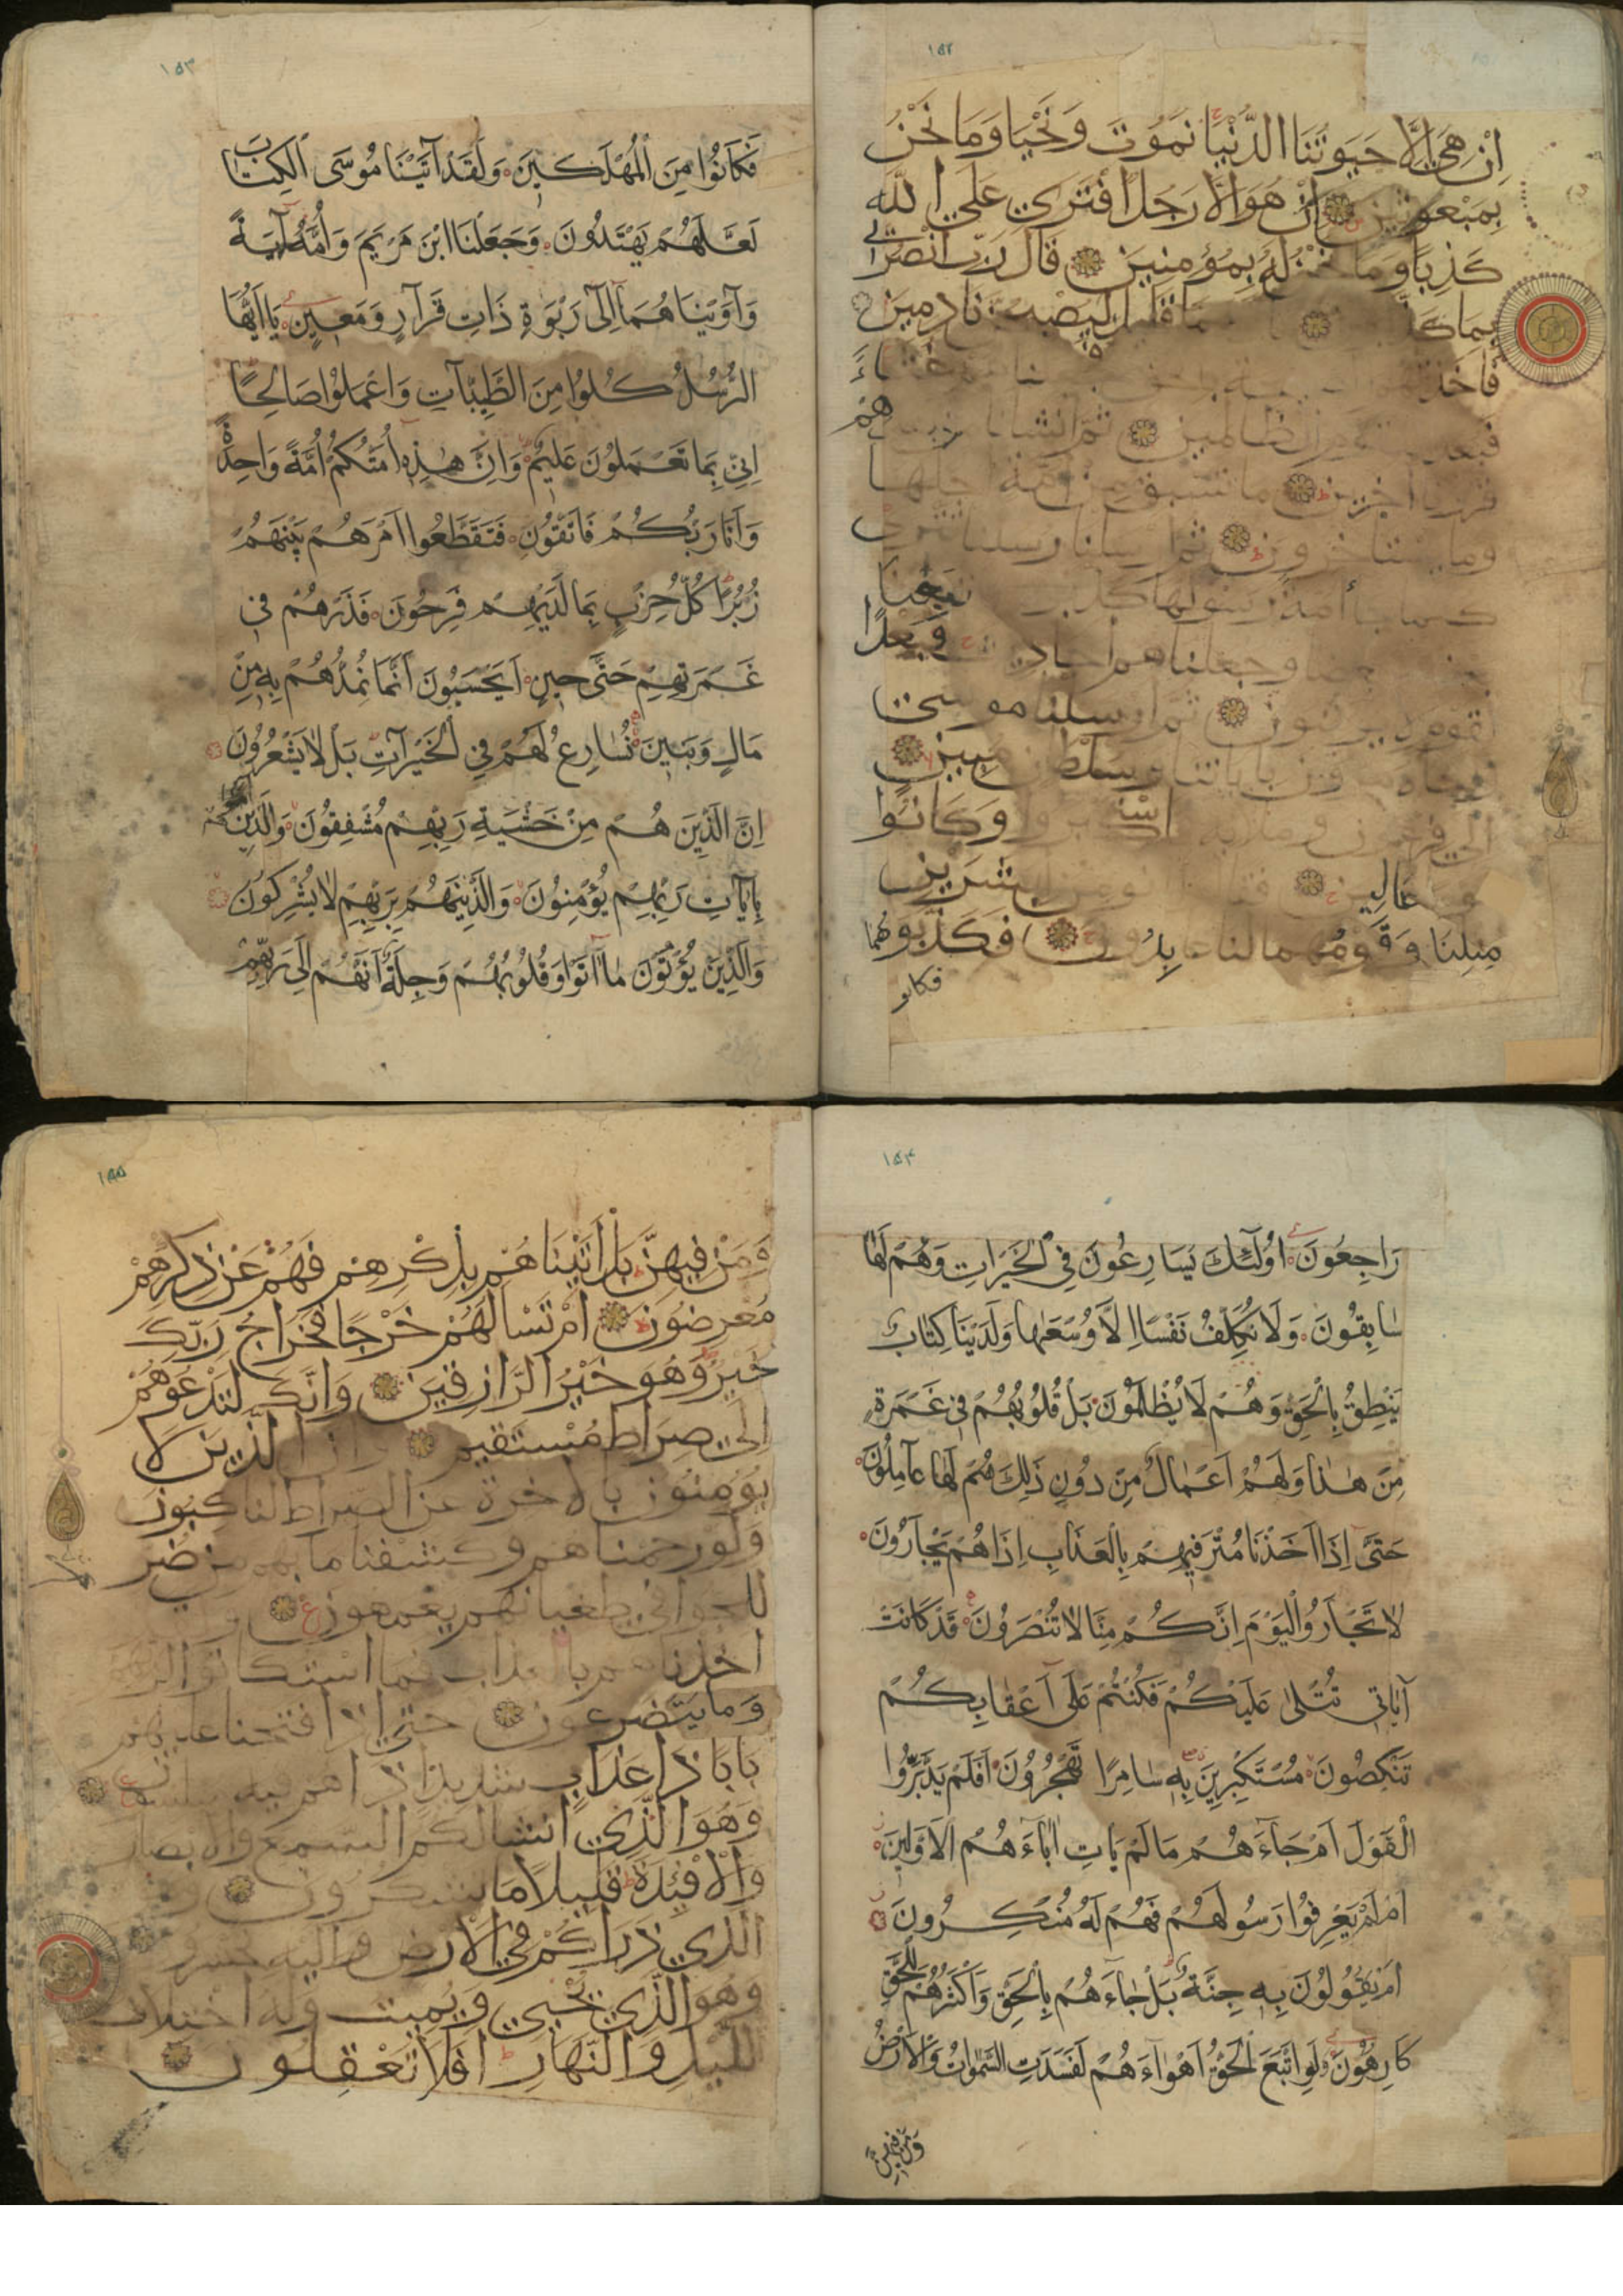 ١٥٢
اِنْ هِيَ اِلَّا حَيٰوتُنَا الدُّنْيَا نَمُوتُ وَنَحْيَا وَمَا نَحْنُ
بِمَبْعُوثِينَ اِنْ هُوَ اِلَّا رَجُلٌ افْتَرٰى عَلَى اللّٰهِ
كَذِبًا وَمَا نَحْنُ لَهُ بِمُؤْمِنِينَ قَالَ رَبِّ انْصُرْنِي
بِمَا قليل ليصبحن نَادِمِينَ
فَاَخَذَتْهُمُ غُثَاءً
فبعدا للقوم الظالمين ثم انشانا من بعدهم
قرونا اخرين ما تسبق من امة اجلها
وما يستاخرون ثم ارسلنا رسلنا تترى
كلما جاء امة رسولها كذبوه فاتبعنا
بعضهم بعضا وجعلناهم احاديث فَبُعْدًا
لقوم لا يؤمنون ثم ارسلنا موسى
واخاه هرون باياتنا وسلطان مبين
الى فرعون وملايه فاستكبروا وَكَانُوا
قوما عَالِين لبشرين
مِثْلِنَا وَقَوْمُهُمَا لنا عابدون فَكَذَّبُوهُمَا
فكانو
١٥٣
فَكَانُوا مِنَ الْمُهْلَكِينَ وَلَقَدْ اٰتَيْنَا مُوسَى الْكِتَابَ
لَعَلَّهُمْ يَهْتَدُونَ وَجَعَلْنَا ابْنَ مَرْيَمَ وَاُمَّهُ اٰيَةً
وَاٰوَيْنَاهُمَا اِلٰى رَبْوَةٍ ذَاتِ قَرَارٍ وَمَعِينٍ يَا اَيُّهَا
الرُّسُلُ كُلُوا مِنَ الطَّيِّبَاتِ وَاعْمَلُوا صَالِحًا
اِنِّي بِمَا تَعْمَلُونَ عَلِيمٌ وَاِنَّ هٰذِهِ اُمَّتُكُمْ اُمَّةً وَاحِدَةً
وَاَنَا رَبُّكُمْ فَاتَّقُونِ فَتَقَطَّعُوا اَمْرَهُمْ بَيْنَهُمْ
زُبُرًا كُلُّ حِزْبٍ بِمَا لَدَيْهِمْ فَرِحُونَ فَذَرْهُمْ فِي
غَمْرَتِهِمْ حَتّٰى حِينٍ اَيَحْسَبُونَ اَنَّمَا نُمِدُّهُمْ بِهِ مِنْ
مَالٍ وَبَنِينَ نُسَارِعُ لَهُمْ فِي الْخَيْرَاتِ بَلْ لَا يَشْعُرُونَ
اِنَّ الَّذِينَ هُمْ مِنْ خَشْيَةِ رَبِّهِمْ مُشْفِقُونَ وَالَّذِينَ هُمْ
بِاٰيَاتِ رَبِّهِمْ يُؤْمِنُونَ وَالَّذِينَ هُمْ بِرَبِّهِمْ لَا يُشْرِكُونَ
وَالَّذِينَ يُؤْتُونَ مَا اٰتَوْا وَقُلُوبُهُمْ وَجِلَةٌ اَنَّهُمْ اِلٰى رَبِّهِمْ
١٥٤
رَاجِعُونَ اُولٰئِكَ يُسَارِعُونَ فِي الْخَيْرَاتِ وَهُمْ لَهَا
سَابِقُونَ وَلَا نُكَلِّفُ نَفْسًا اِلَّا وُسْعَهَا وَلَدَيْنَا كِتَابٌ
يَنْطِقُ بِالْحَقِّ وَهُمْ لَا يُظْلَمُونَ بَلْ قُلُوبُهُمْ فِي غَمْرَةٍ
مِنْ هٰذَا وَلَهُمْ اَعْمَالٌ مِنْ دُونِ ذٰلِكَ هُمْ لَهَا عَامِلُونَ
حَتّٰى اِذَا اَخَذْنَا مُتْرَفِيهِمْ بِالْعَذَابِ اِذَا هُمْ يَجْاَرُونَ
لَا تَجْاَرُوا الْيَوْمَ اِنَّكُمْ مِنَّا لَا تُنْصَرُونَ قَدْ كَانَتْ
اٰيَاتِي تُتْلٰى عَلَيْكُمْ فَكُنْتُمْ عَلٰى اَعْقَابِكُمْ
تَنْكِصُونَ مُسْتَكْبِرِينَ بِهِ سَامِرًا تَهْجُرُونَ اَفَلَمْ يَدَّبَّرُوا
الْقَوْلَ اَمْ جَاءَهُمْ مَا لَمْ يَاْتِ اٰبَاءَهُمُ الْاَوَّلِينَ
اَمْ لَمْ يَعْرِفُوا رَسُولَهُمْ فَهُمْ لَهُ مُنْكِرُونَ
اَمْ يَقُولُونَ بِهِ جِنَّةٌ بَلْ جَاءَهُمْ بِالْحَقِّ وَاَكْثَرُهُمْ لِلْحَقِّ
كَارِهُونَ وَلَوِ اتَّبَعَ الْحَقُّ اَهْوَاءَهُمْ لَفَسَدَتِ السَّمٰوَاتُ وَالْاَرْضُ
وَمَنْ فِيهِنَّ
١٥٥
وَمَنْ فِيهِنَّ بَلْ اَتَيْنَاهُمْ بِذِكْرِهِمْ فَهُمْ عَنْ ذِكْرِهِمْ
مُعْرِضُونَ اَمْ تَسْاَلُهُمْ خَرْجًا فَخَرَاجُ رَبِّكَ
خَيْرٌ وَهُوَ خَيْرُ الرَّازِقِينَ وَاِنَّكَ لَتَدْعُوهُمْ
اِلٰى صِرَاطٍ مُسْتَقِيمٍ وَاِنَّ الَّذِينَ لَا
يُؤْمِنُونَ بالاخرة عن الصراط لناكبون
وَلَوْ رحمناهم وكشفنا ما بهم من ضر
للجوا في طغيانهم يعمهون
اخذناهم بالعذاب فما استكانوا لربهم
وَمَا يَتَضَرَّعُونَ حتى اذا فتحنا عليهم
بَابًا ذَا عَذَابٍ شديد اذا هم فيه مبلسون
وَهُوَ الَّذِي اَنْشَا لكم السمع والابصار
وَالْاَفْئِدَةَ قَلِيلًا مَا تشكرون
الَّذِي ذَرَاَكُمْ فِي الْاَرْضِ واليه تحشرون
وَهُوَ الَّذِي يُحْيِي وَيُمِيتُ وَلَهُ اخْتِلَاف
اللَّيْلِ وَالنَّهَارِ اَفَلَا تَعْقِلُونَ